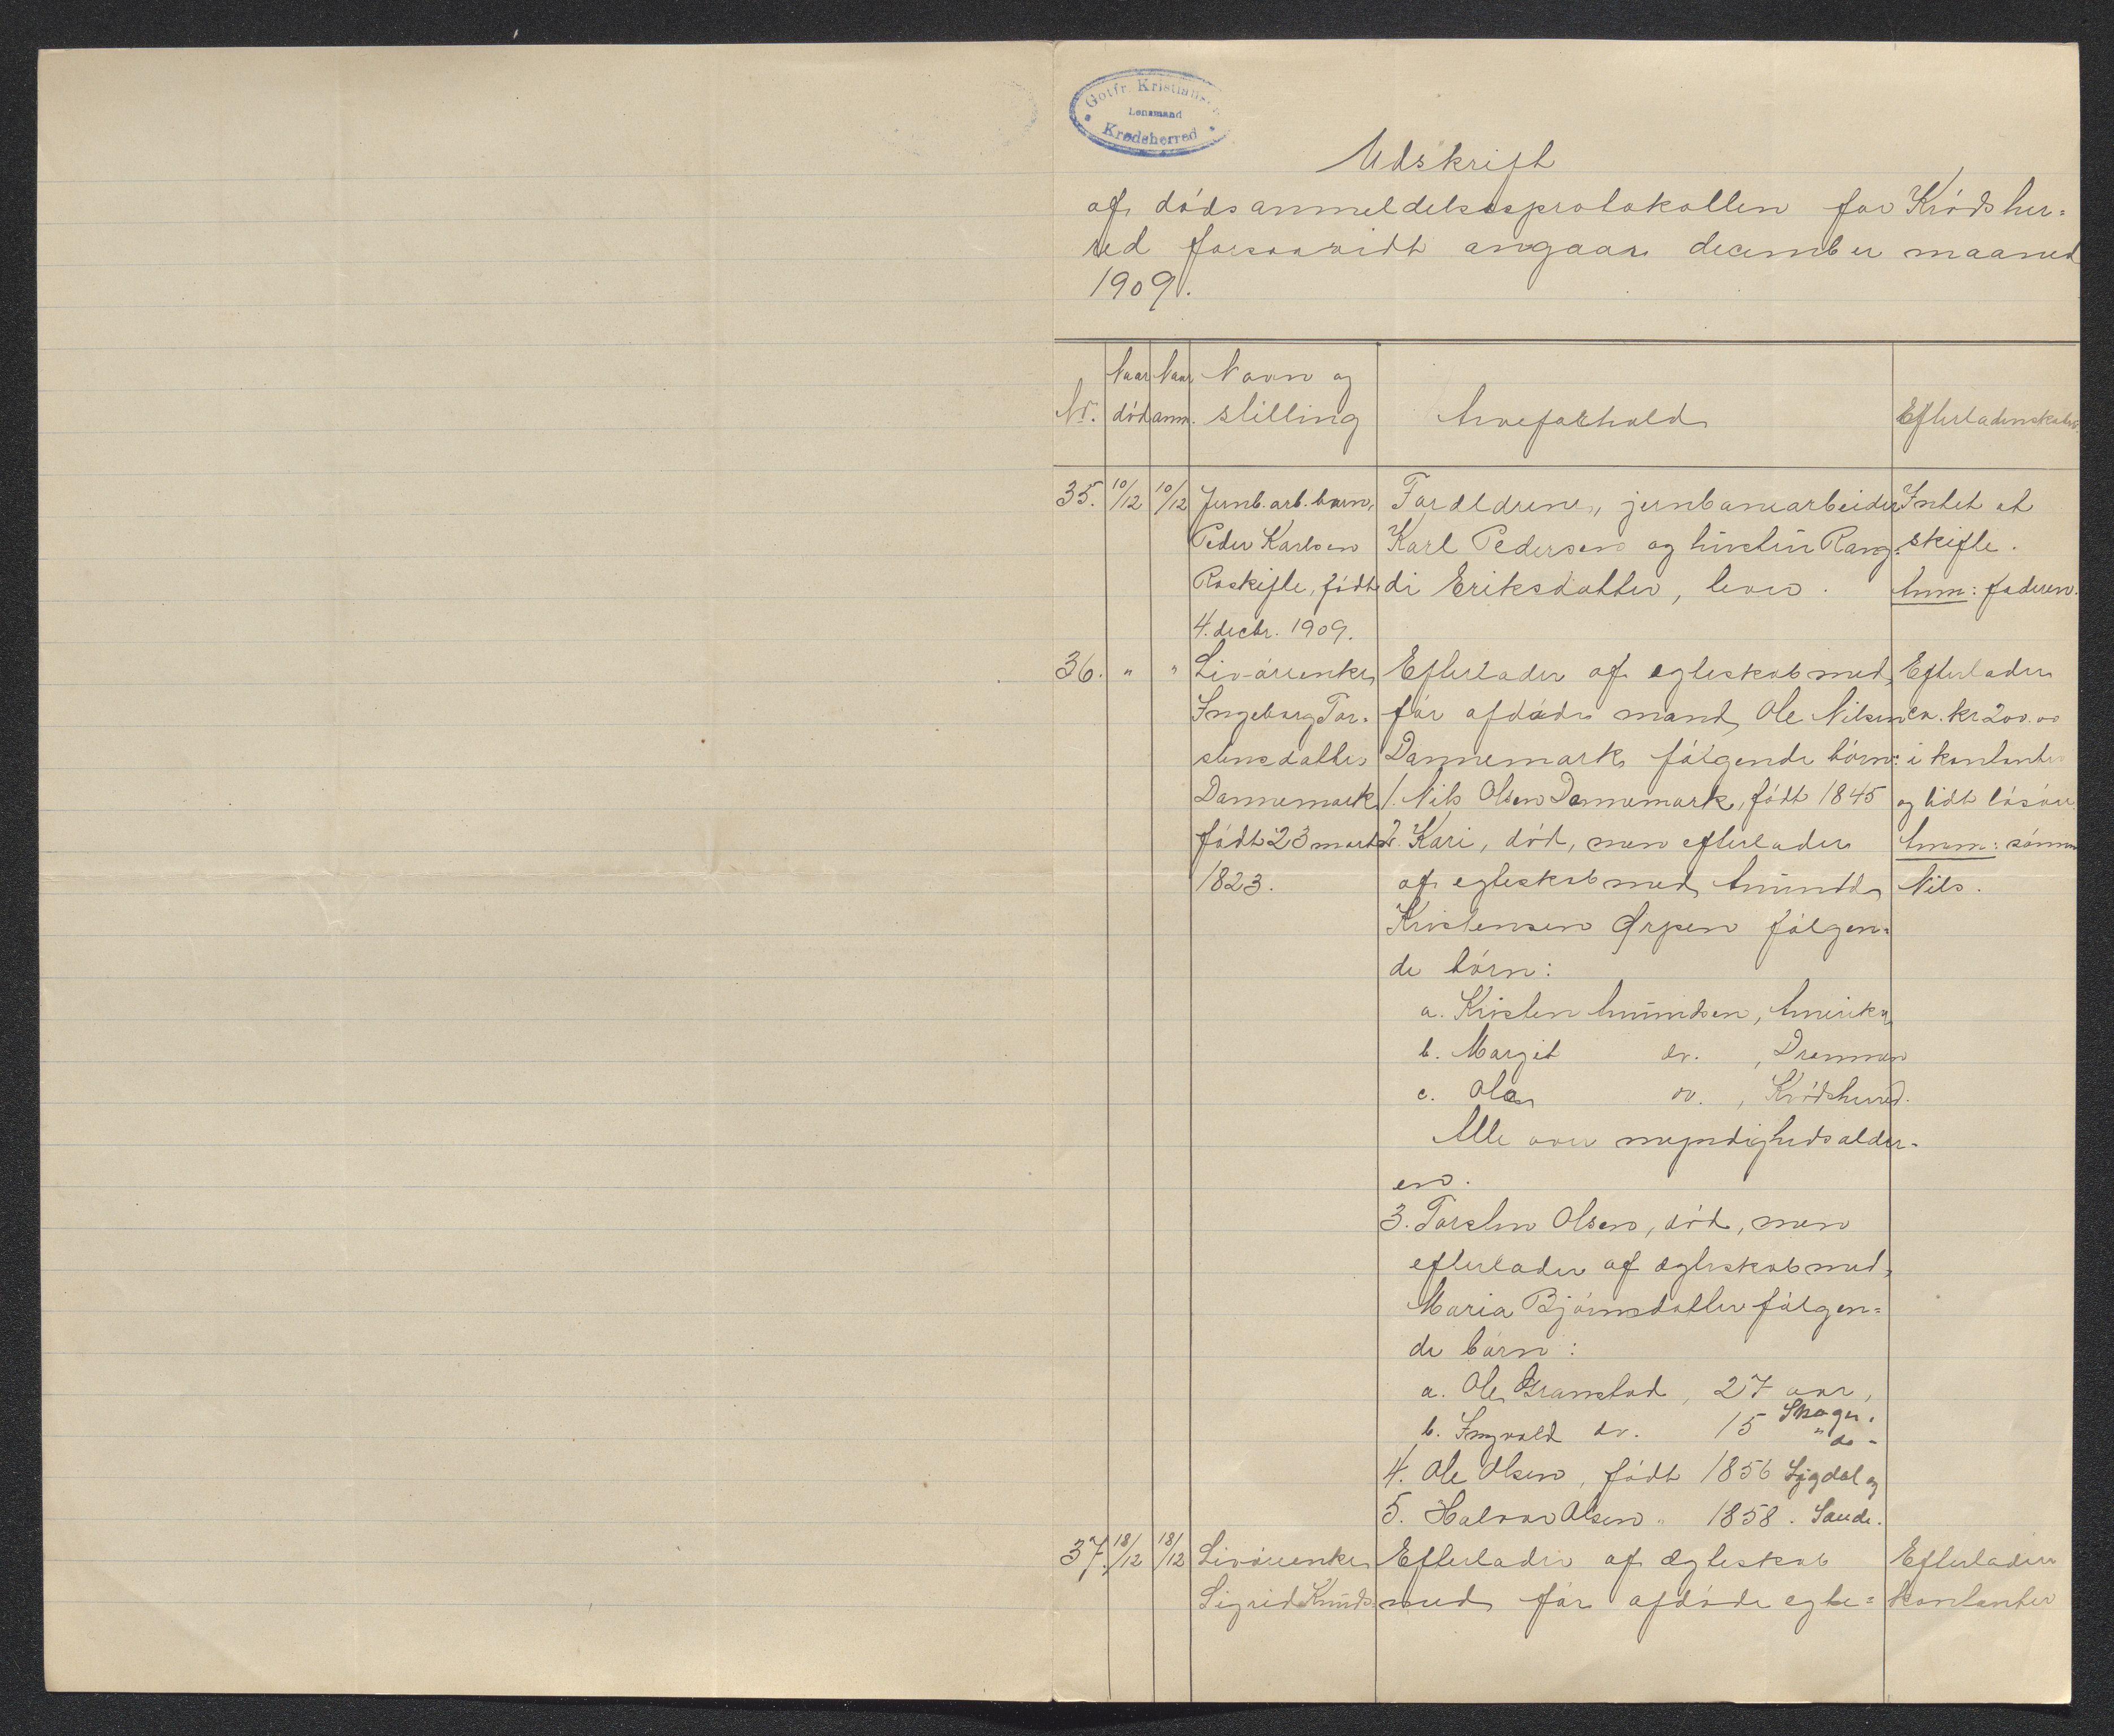 Gotfr. Kristiansen
Lensmand
Krødsherred
Udskrift
af dødsanmeldelsesprotokollen for Krødsher=
red forsaavidt angaar december maaned
1909.
Nr.
Naar død
Naar anm.
Navn og stilling
Arveforhold
Efterladenskaber
35. 10/12 10/12
Jernb.arb. barn,
Peder Karlsen
Roskifte, født
4. decbr. 1909.
Forældrene, jernbanearbeider
Karl Pedersen og hustru Rang=
di Eriksdatter, lever.
Intet at
skifte.
Anm: faderen.
36. " "
Liv-ørenke
Ingeborg Tor=
stensdatter
Dannemark
født 23 marts
1823.
Efterlader af egteskab med
før afdøde mand Ole Nilsen
Dannemark følgende børn:
1. Nils Olsen Dannemark, født 1845
2. Kari, død, men efterlader
af egteskab med Amund
Kristensen Ørpen følgen=
de børn:
a. Kristen Amundsen, Amerika
b. Margit do. , Drammen
c. Ola do. , Krødsherred.
Alle over myndighedsalder=
en.
3. Torsten Olsen, død, men
efterlader af ægteskab med
Maria Bjørnsdatter følgen=
de børn:
a. Ole Granstad, 27 aar, Skoger.
b. Ingvald do. 15 " do -
4. Ole Olsen, født 1856 Sigdal og
5. Halvor Olsen " 1858. Sande.
Efterlader
ca. kr 200.00
i kontanter
og lidt løsøre.
Anm: sønnen
Nils.
37. 18/12 18/12
Livørenke
Sigrid Knuds=
Efterlader af ægteskab
med før afdøde egte=
Efterlader
kontanter